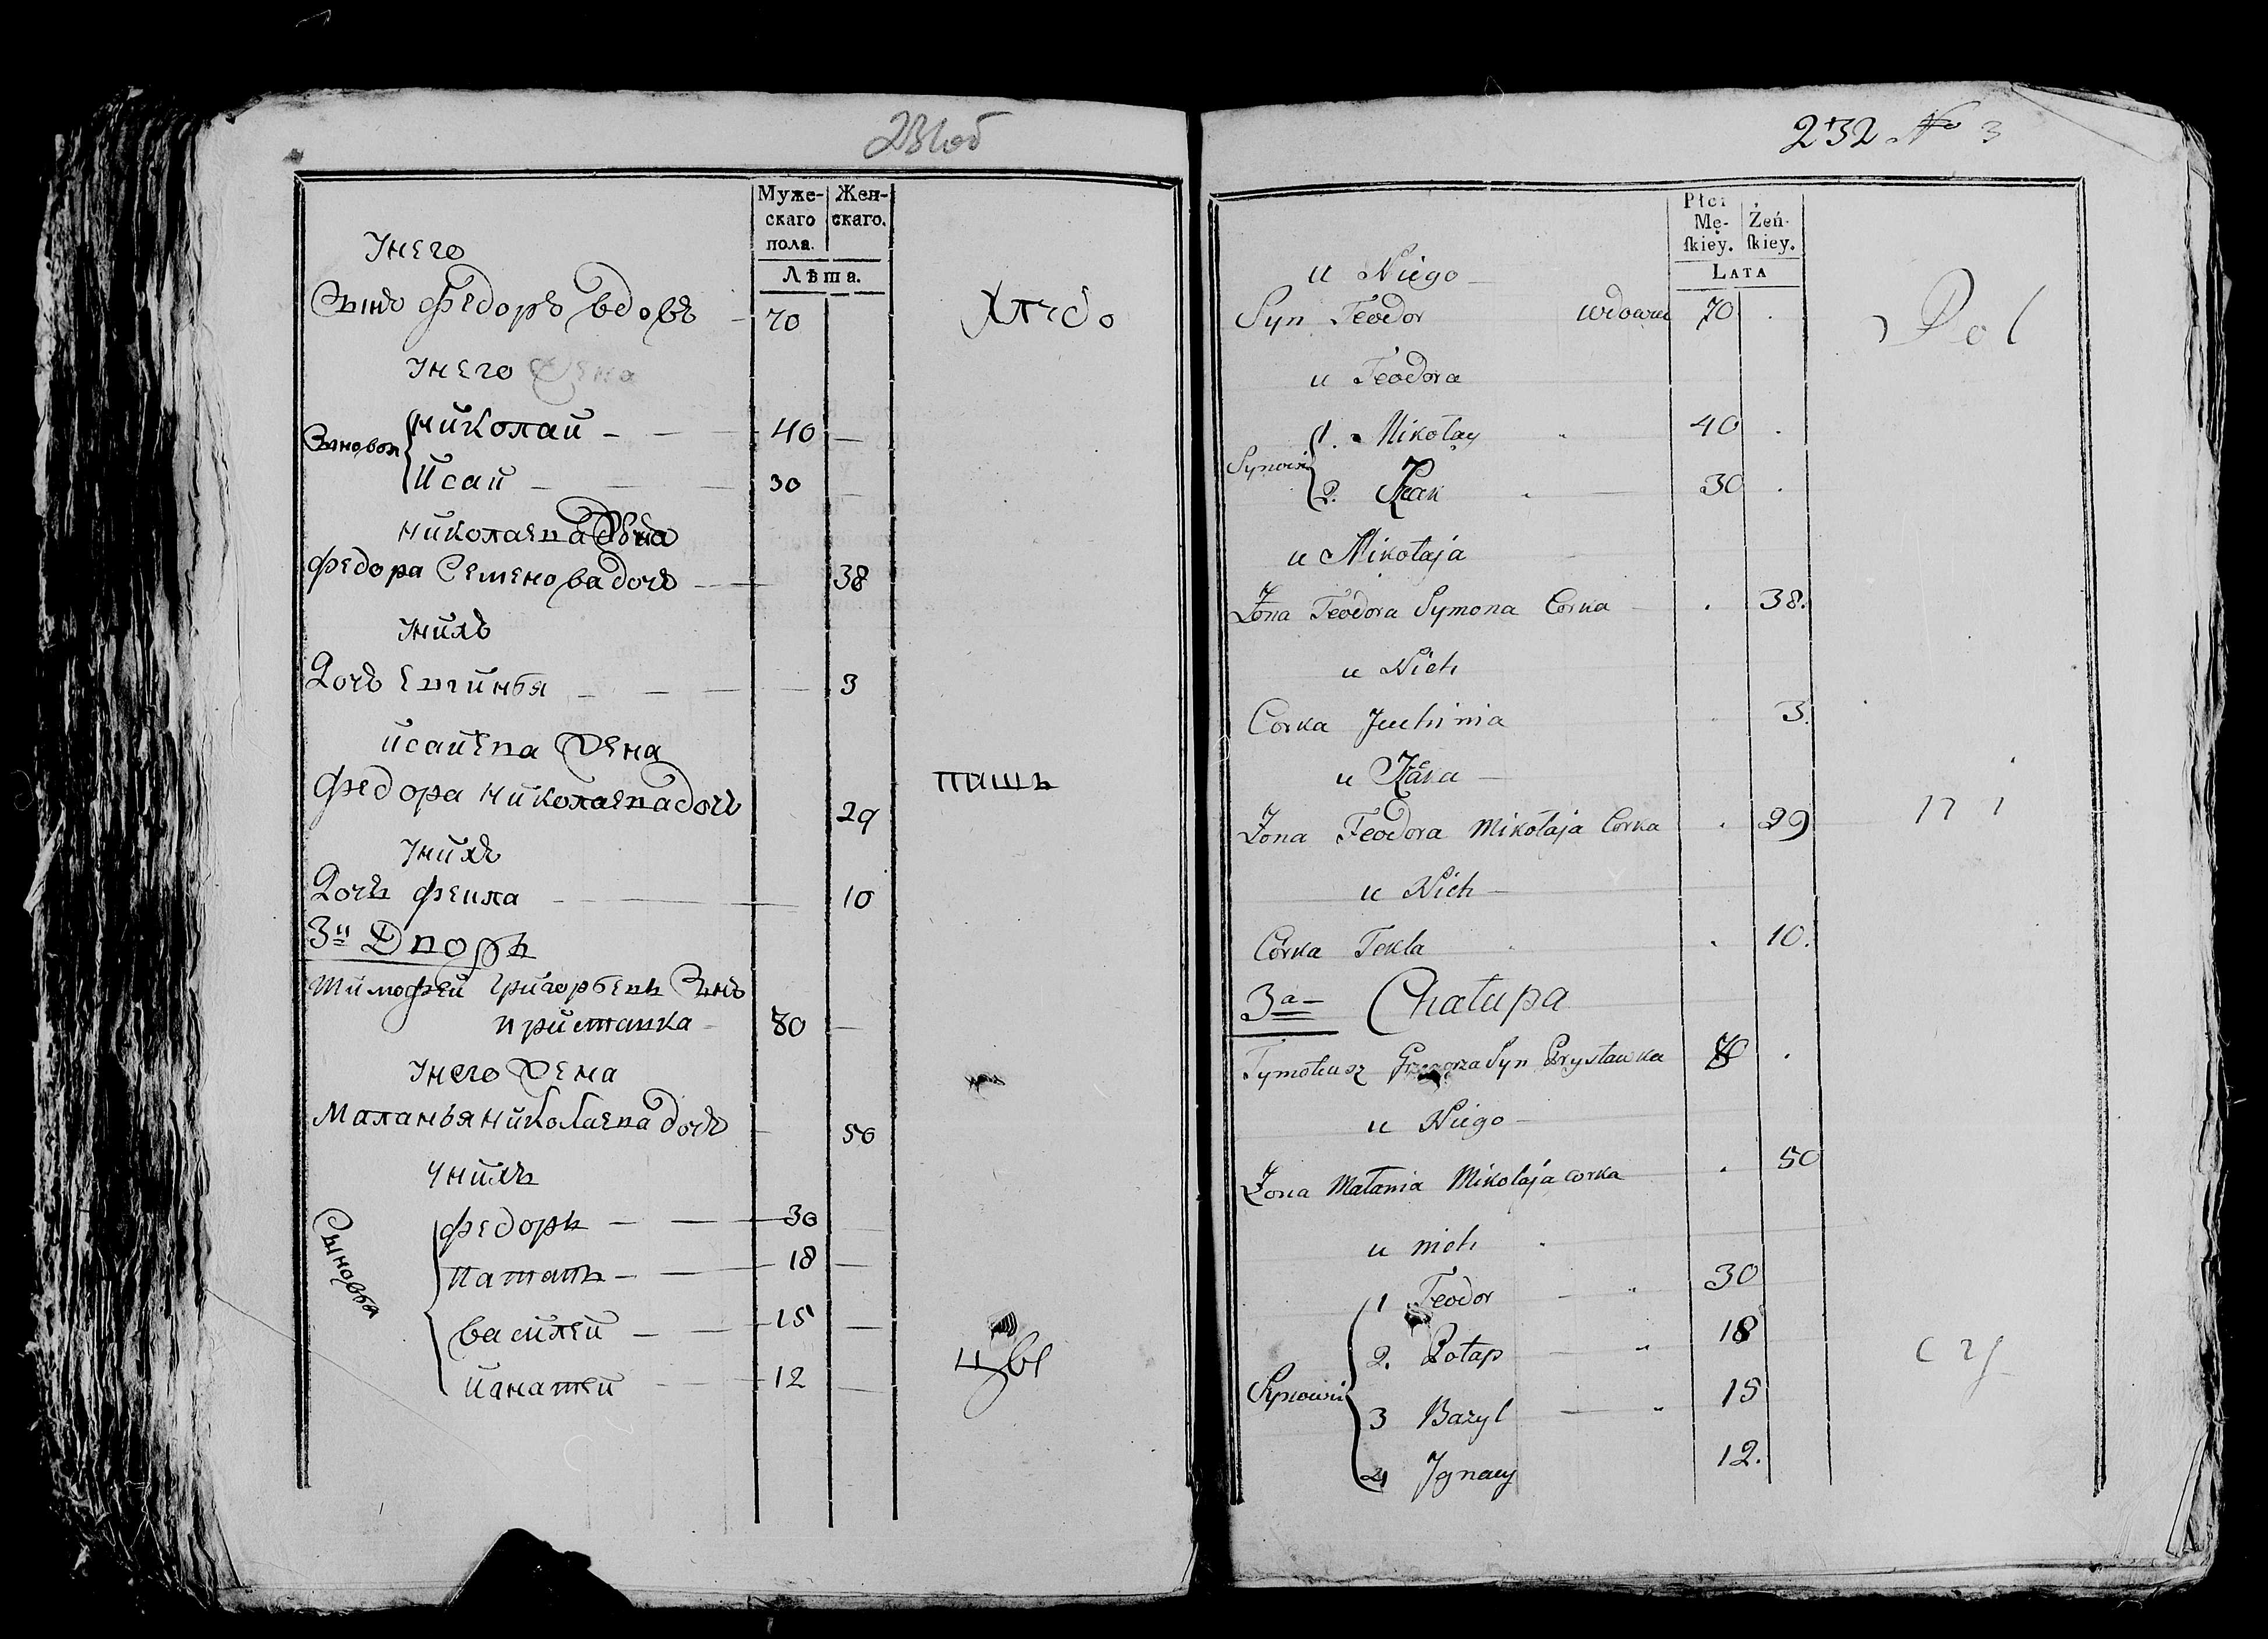 231об
Муже-
скаго
пола.
Жен-
скаго.
Лѣта.
Унего
Сынъ Федоръ вдовъ 70
Унего Жена
Сыновья
Николай 40
Исай 30
Николаева Жена
Федора Семенова дочь 38
Унихъ
Дочь Евгинья 3
Исаиева Жена
Федора Николаева дочь 29
Унихъ
Дочь Фекла 10
3й Дворъ
Тимофей Григорьевъ Сынъ
Приставка 80
Унего Жена
Маланья Николаева дочь 50
Унихъ
Сыновья
Федоръ 30
Патапъ 18
Василей 15
Игнатей 12
пашь
232 No 3
Płci
Mę-
skiey.
Żeń-
skiey.
LATA
u Niego
Syn Teodor wdowiec 70
u Teodora
Synowie
1. Mikołay 40
2. Izak 30
u Mikołaja
Żona Teodora Symona Corka 38.
u Nich
Corka Juchinia 3.
u Izaka
Żona Teodora Mikołaja Corka 29
u Nich
Córka Tekla 10.
3a Chałupa
Tymoteusz Grzegorza Syn Prystawka 80
u Niego
Żona Małania Mikołaja corka 50
u nich
Synowie
1 Teodor 30
2. Potap 18
3 Bazyl 15
4 Jgnacy 12.
Pol